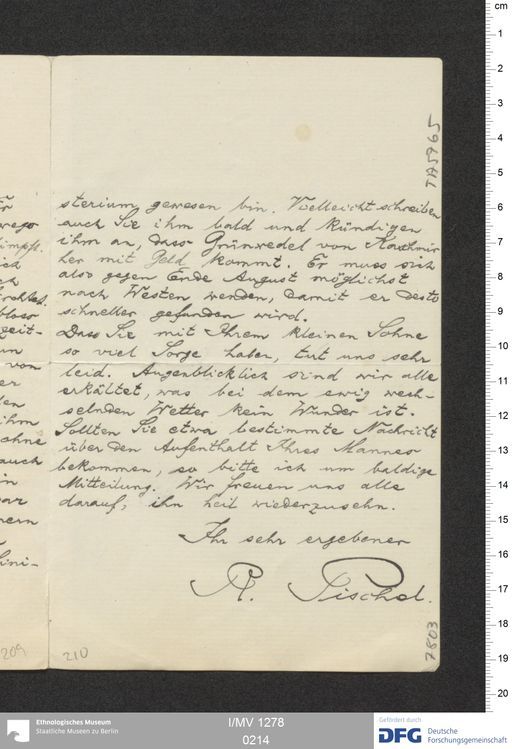 sterium, gewesen bin. Vielleicht schreiben
auch Sie ihm bald und kündigen
ihm an, dass Grünwedel von Kaschmir
her mit Geld kommt. Er muss sich
also gegen Ende August möglichst
nach Westen wenden, damit er desto
schneller gefunden wird.
Dass Sie mit Ihrem kleinen Sohne
so viel Sorge haben, tut uns sehr
leid. Augenblicklich sind wir alle
erkältet, was bei dem ewig wech-
selnden Wetter kein Wunder ist.
Sollten Sie etwa bestimmte Nachricht
über den Aufenthalt Ihres Mannes
bekommen, so bitte ich um baldige
Mitteilung. Wir freuen uns alle
darauf, ihn heil wiederzusehn.
Ihr sehr ergebener
R. Pischel.
TA5765
7803
209
210
ich
von
ihm
ohne
auch
cm
1
2
3
4
5
6
7
8
9
10
11
12
13
14
15
16
17
18
19
20
Ethnologisches Museum
Staatliche Museen zu Berlin
I/MV 1278
0214
Gefördert durch
DFG Deutsche
Forschungsgemeinschaft